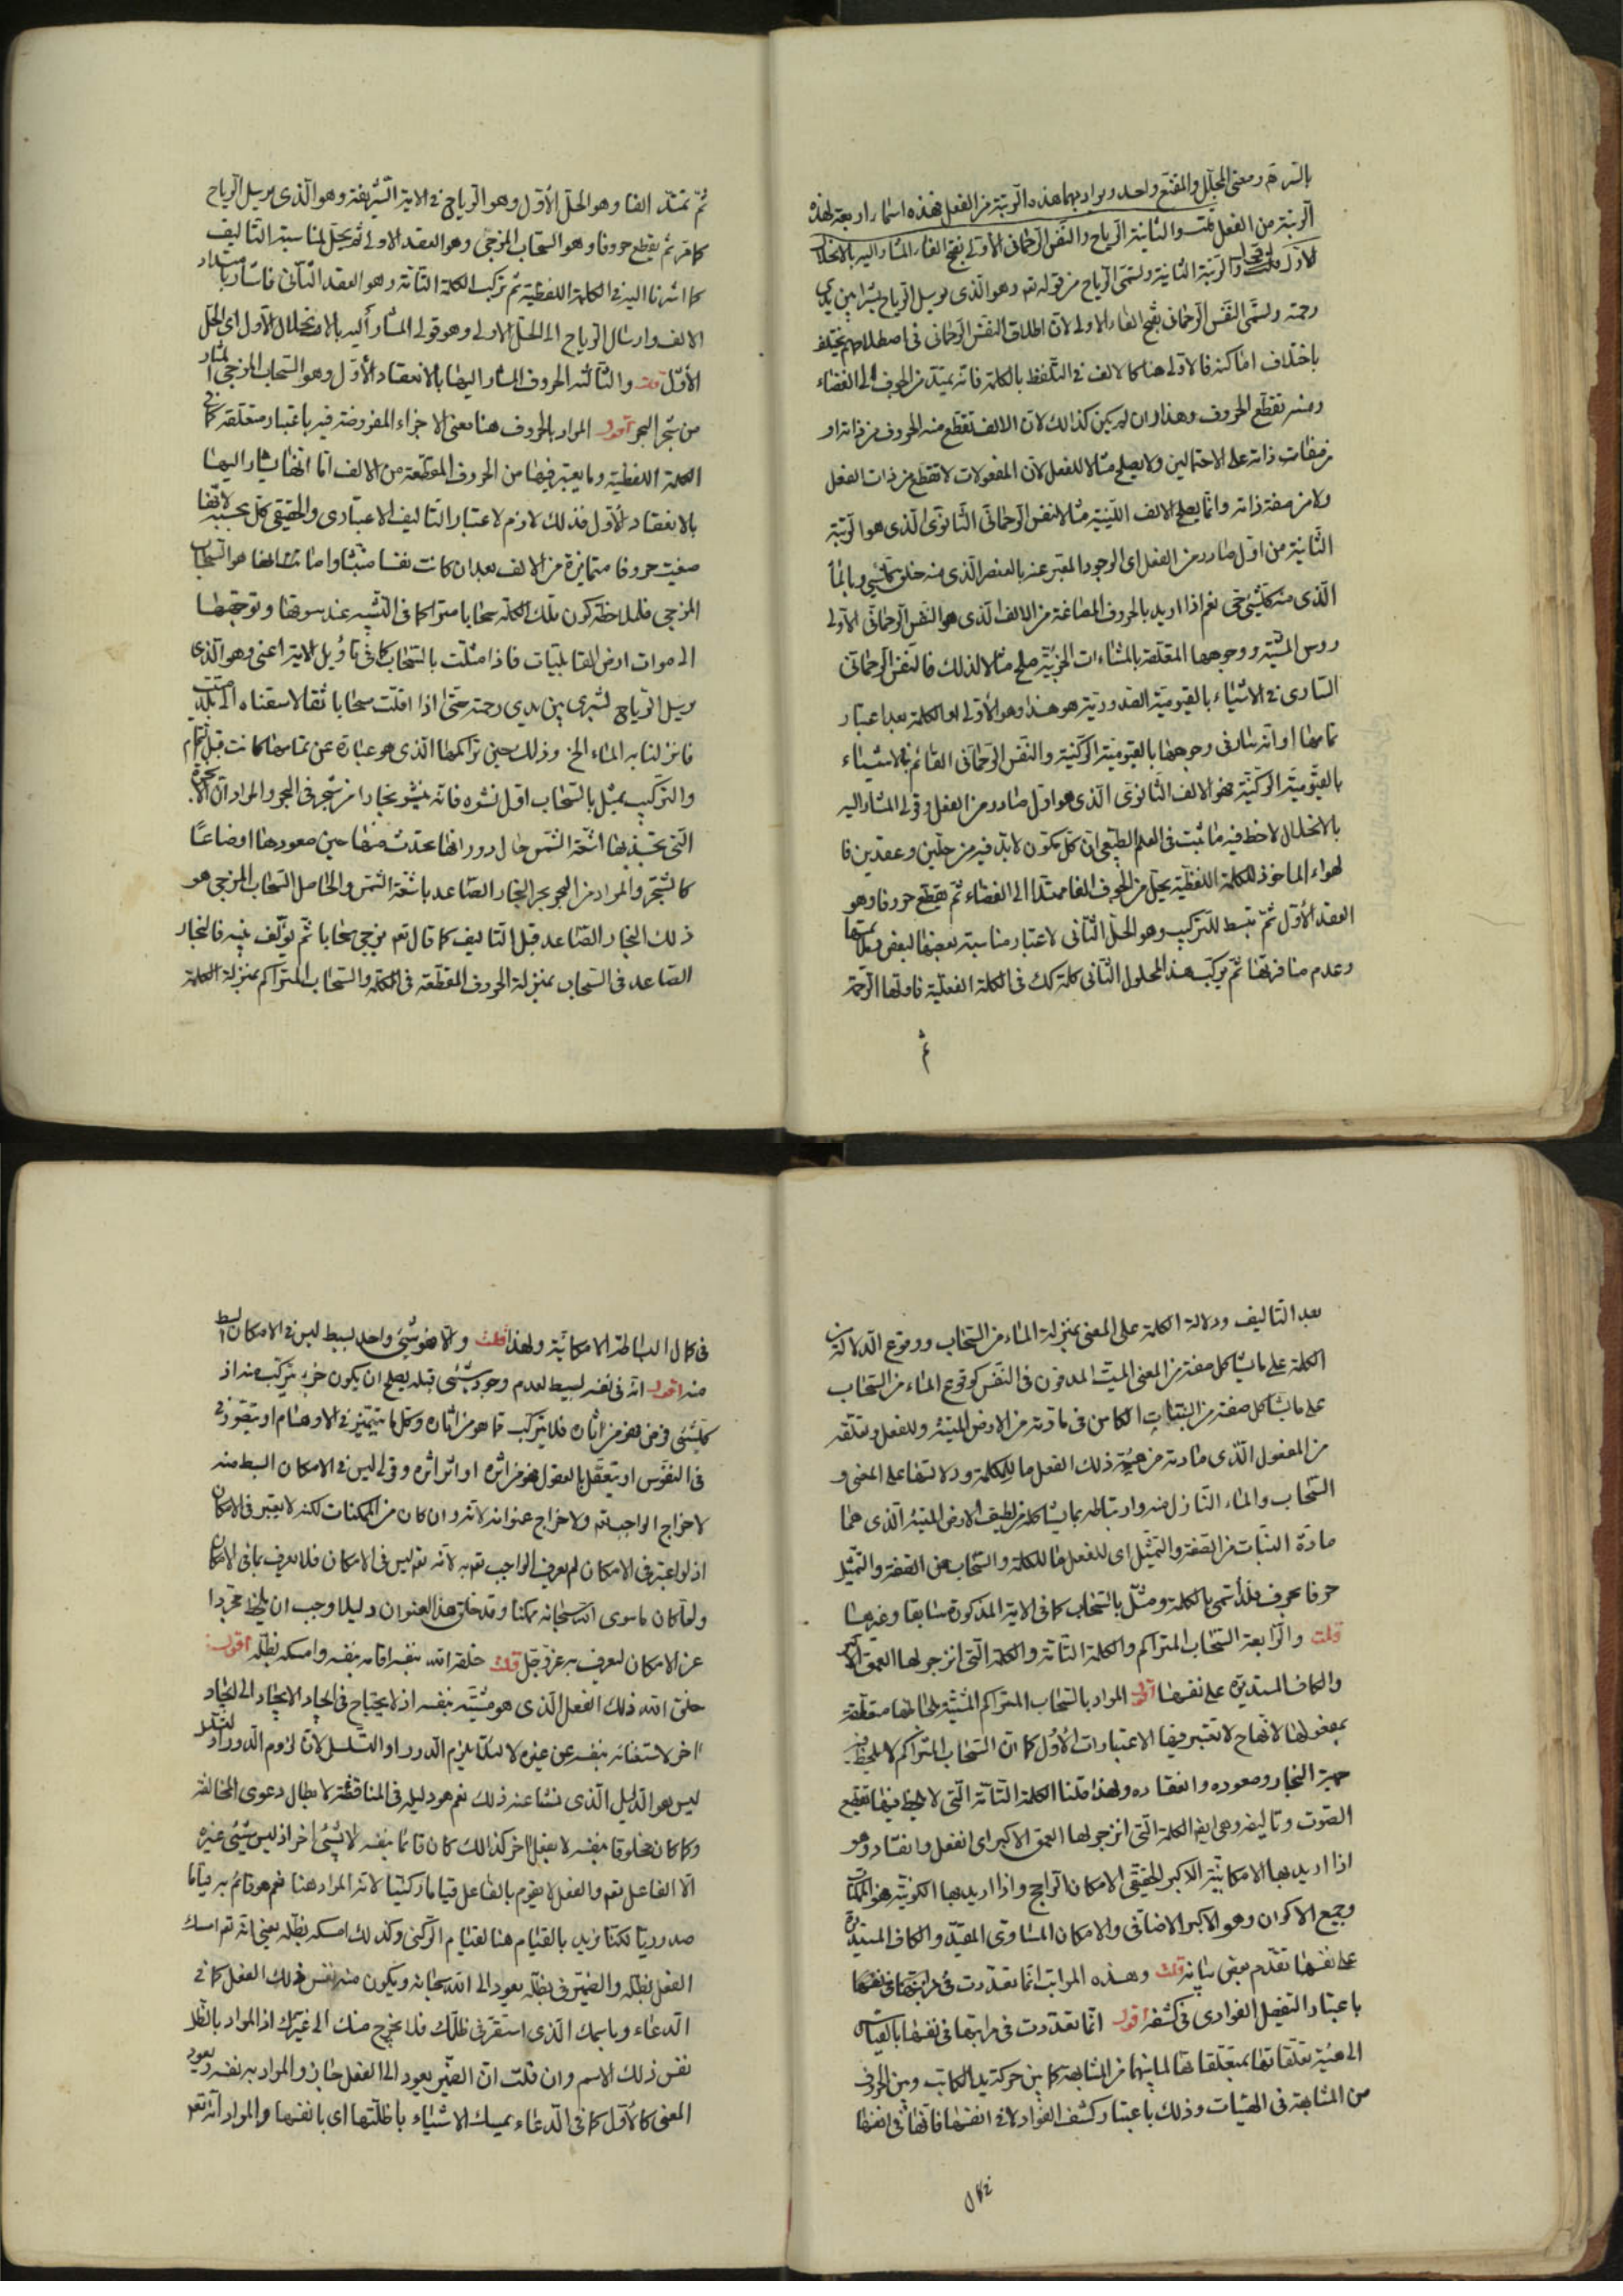 بالترحم ومعنى المجلل والمقنع واحد ويراد بهما هذه الرتبة من الفعل فهذه اسماء اربعة لهذه
الرتبة من الفعل قلت والثانية الرياح والنفس الرحمانى الاولى بفتح الفاء المشار اليه بالانحلال
الاول اقول والرتبة الثانية وتسمى الرياح من قوله تعم وهو الذى يرسل الرياح بشرا بين يدى
رحمته وتسمى النفس الرحمانى بفتح الفاء الاولى لان اطلاق النفس الرحمانى فى اصطلاحهم يختلف
باختلاف اماكنه فالاولى هنا كالالف فى التلفظ بالكلمة فانه يمتد من الجوف الى الفضاء
ومنه تقطع الحروف وهذا وان لم يكن كذلك لان الالف تقطع منه الحروف من ذاته او
من صفات ذاته على الاحتمالين ولا يصلح مثالا للفعل لان المفعولات لا تقطع من ذات الفعل
ولا من صفة ذاته وانما يصلح الالف اللينية مثالا للنفس الرحمانى الثانوى الذى هو الرتبة
الثانية من اول صادر من الفعل اى الوجود المعبر عنه بالعنصر الذى منه خلق كلشئ وبالماء
الذى منه كلشئ حى نعم اذا اريد بالحروف المصاغة من الالف الذى هو النفس الرحمانى الاولى
روس المشية ووجوهها المتعلقة بالمشاءات الجزئية صلح مثالا لذلك فالنفس الرحمانى
السارى فى الاشياء بالقيومية الصدورية هو هذا وهو الاولى او الكلمة بعد اعتبار
تمامها او انه سار فى وجوهها بالقيومية الركنية والنفس الرحمانى القائم بالاشياء
بالقيومية الركنية فهو الالف الثانوى الذى هو اول صادر من الفعل وقولى المشار اليه
بالانحلال لاحظ فيه ما ثبت فى العلم الطبيعى ان كل مكون لابد فيه من حلين وعقدين فا
لهواء الماخوذ للكلمة اللفظية يحل من الجوف الفا ممتدا الى الفضاء ثم يقطع حروفا وهو
العقد الاول ثم تبسط للتركيب وهو الحل الثانى لاعتبار مناسبة بعضها لبعض
وعدم منافرتها ثم يركب هذا المحلول الثانى كلمة كك فى الكلمة الفعلية فاولها الرحمة
ثم
ثم تمتد الفا وهو الحل الاول وهو الرياح فى الاية الشريفة وهو الذى يرسل الرياح
كما مر ثم يقطع حروفا وهو السحاب المزجى وهو العقد الاولى ثم يحل لمناسبة التاليف
كما اشرنا اليه فى الكلمة اللفظية ثم تركب الكلمة التامة وهو العقد الثانى فاشار بامتداد
الالف وارسال الرياح الى الحل الاولى وهو قولى المشار اليه بالانحلال الاول اى الحل
الاول قلت والثالثة الحروف المشار اليها بالانعقاد الاول وهو السحاب المزجى المثار
من شجر البحر اقول المراد بالحروف هنا معنى الاجزاء المفروضة فيه باعتبار متعلقه كما فى
الكلمة اللفظية وما يعتبر فيها من الحروف المقطعة من الالف اما انها يشار اليها
بالانعقاد الاول فذلك لازم لاعتبار التاليف الاعتبارى والحقيقى كل بحسبه لانها
صيغت حروفا متمايزة من الالف بعد ان كانت نفسا منبثا واما انها هو السحاب
المزجى فلملاحظة كون تلك الكلمة سحابا متراكما فى التشبيه عند سوقها وتوجهها
الى موات ارض القابليات فاذا مثلت بالسحاب كما فى تاويل الاية اعنى وهو الذى
يرسل الرياح بشرى بين يدى رحمته حتى اذا اقلت سحابا ثقالا سقناه الى بلد ميت
فانزلنا به الماء الخ وذلك حين تراكمها الذى هو عبارة عن تمامها كانت قبل التمام
والتركيب يمثل بالسحاب اول نشوه فانه ينشو بخارا من شجر فى البحر والمراد ان الابخرة
التى تجذبها اشعة الشمس حال دورانها تحدث منها حين صعودها اوضاعا
كالشجر والمراد من البحر بحر البخار الصاعد باشعة الشمس والحاصل السحاب المزجى هو
ذلك البخار الصاعد قبل التاليف كما قال تعم يزجى سحابا ثم يؤلف بينه فالبخار
الصاعد فى السحاب بمنزلة الحروف المقطعة فى الكلمة والسحاب المتراكم بمنزلة الكلمة
بعد التاليف ودلالة الكلمة على المعنى بمنزلة الماء من السحاب ووقوع الدلالة من
الكلمة على ما يشاكل صفته من المعنى الميت المدفون فى النفس كوقوع الماء من السحاب
على ما يشاكل صفته من النبات الكامن فى مادته من الارض الميتة وللفعل وتعلقه
من المفعول الذى مادته من هيئة ذلك الفعل ما للكلمة ودلالتها على المعنى و
السحاب والماء النازل منه وارتباطه بما يشاكله من لطيف الارض الميتة الذى هما
مادة النبات من الصفة والتمثيل اى للفعل ما للكلمة والسحاب من الصفة والتمثيل
حرفا بحرف فلذا سمى بالكلمة ومثل بالسحاب كما فى الاية المذكورة سابقا وغيرها
قلت والرابعة السحاب المتراكم والكلمة التامة والكلمة التى انزجر لها العمق الاكبر
والكاف المستديرة على نفسها اقول المراد بالسحاب المتراكم المشية بلحاظ انها متعلقة
بمفعولها لانها ح لا تعتبر فيها الاعتبارات الاول كما ان السحاب المتراكم لا يلحظ فيه
جهة البخار وصعوده وانعقاده ولهذا قلنا الكلمة التامة التى لا يلحظ فيها تقطيع
الصوت وتاليفه وهى ايضا الكلمة التى انزجر لها العمق الاكبر اى انفعل وانقاد وهو
اذا اريد بها الامكانية الاكبر الحقيقى الامكان الراجح واذا اريد بها الكونية هو الممكنات
وجميع الاكوان وهو الاكبر الاضافى والامكان المساوى المقيد والكاف المستديرة
على نفسها تقدم بعض بيانه قلت وهذه المراتب انما تعددت فى مراتبها فى نفسها
باعتبار التفصيل الفوادى فى كشفه اقول انما تعددت فى مراتبها فى نفسها بالقياس
الى هيئة تعلقاتها بمتعلقاتها لما بينهما من المشابهة كما بين حركة يد الكاتب وبين الحروف
من المشابهة فى الهيئات وذلك باعتبار كشف الفواد لا فى انفسها فانها فى انفسها
فى كمال البساطة الامكانية ولهذا قلت والا فهو شئ واحد بسيط ليس فى الامكان ابسط
منه اقول انه فى نفسه بسيط لعدم وجود شئ قبله يصلح ان يكون جزء يتركب منه اذ
كلشئ فرض فهو من اثاره فلا يتركب مما هو من اثاره وكل ما يتميز فى الاوهام او يتصور
فى النفوس او يتعقل بالعقول فهو من اثره او اثر اثره وقولى ليس فى الامكان ابسط منه
لاخراج الواجب تعم ولاخراج عنوانه لانه وان كان من الممكنات لكنه لا يعتبر فى الامكان
اذ لو اعتبر فى الامكان لم يعرف الواجب تعم به لانه تعم ليس فى الامكان فلا يعرف بما فى الامكان
ولما كان ما سوى الله سبحانه ممكنا وقد خلق هذا العنوان دليلا وجب ان يلحظ مجردا
عن الامكان ليعرف به عز وجل قلت خلقه الله بنفسه اقامه بنفسه وامسكه بظله اقول
خلق الله ذلك الفعل الذى هو مشيته بنفسه اذ لا يحتاج فى ايجاد الايجاد الى ايجاد
اخر لاستغنائه بنفسه عن غيره لا لئلا يلزم الدور او التسلسل لان لزوم الدور او التسلسل
ليس هو الدليل الذى نشا عنه ذلك نعم هو دليله فى المناقضة لابطال دعوى المخالف
وكما كان مخلوقا بنفسه لا بفعل اخر كذلك كان قائما بنفسه لا بشئ اخر اذ ليس شئ غيره
الا الفاعل تعم والفعل لا يقوم بالفاعل قياما ركنيا لانه المراد هنا نعم هو قائم به قياما
صدوريا لكنا نريد بالقيام هنا القيام الركنى وكذلك امسكه بظله يعنى انه تعم امسك
الفعل بظله والضمير فى بظله يعود الى الله سبحانه ويكون منه نفس ذلك الفعل كما فى
الدعاء وباسمك الذى استقر فى ظلك فلا يخرج منك الى غيرك اذ المراد بالظل
نفس ذلك الاسم وان قلت ان الضمير يعود الى الفعل جاز والمراد به نفسه ويعود
المعنى كالاول كما فى الدعاء يمسك الاشياء باظلتها اى بانفسها والمراد انه تعم